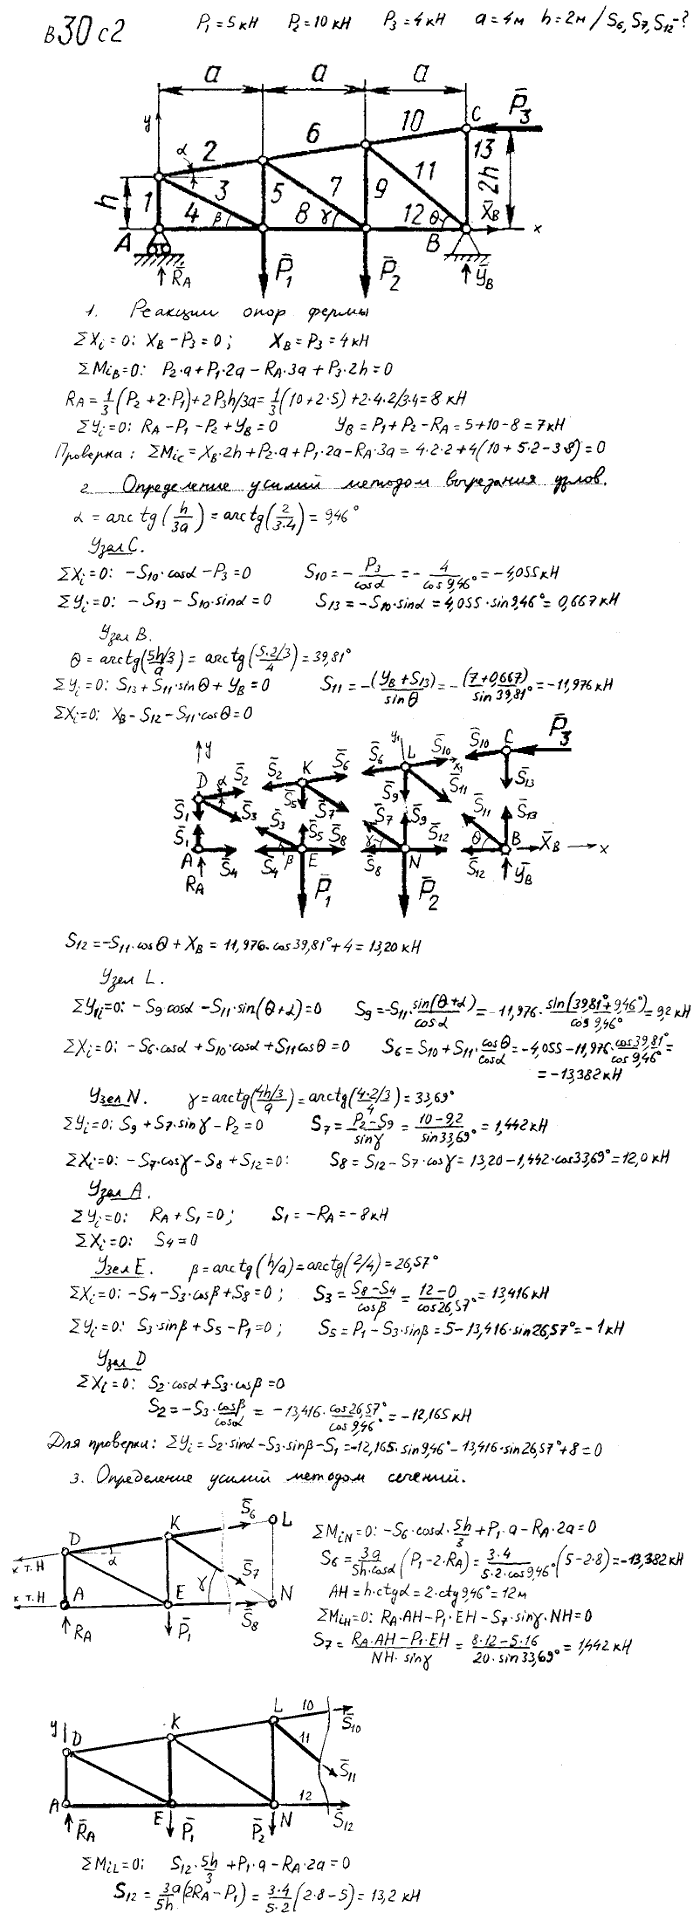 В30 с2 P₁=5кН P₂=10кН P₃=4кН a=4м h=2м / S₆, S₇, S₁₂-?
a a a
y 2 α 6 10 C P̄₃
h 1 3 5 7 9 11 13 2h
4 β 8 γ 12 θ X̄_B x
A B
R̄_A P̄₁ P̄₂ Ȳ_B
1. Реакции опор фермы
ΣXᵢ=0: X_B-P₃=0; X_B=P₃=4кН
ΣMᵢ_B=0: P₂·a+P₁·2a-R_A·3a+P₃·2h=0
R_A=1/3(P₂+2·P₁)+2P₃h/3a=1/3(10+2·5)+2·4·2/3·4=8кН
ΣYᵢ=0: R_A-P₁-P₂+Y_B=0 Y_B=P₁+P₂-R_A=5+10-8=7кН
Проверка: ΣMᵢc=X_B·2h+P₂·a+P₁·2a-R_A·3a=4·2·2+4(10+5·2-3·8)=0
2 Определение усилий методом вырезания узлов.
α=arctg(h/3a)=arctg(2/3·4)=9,46°
Узел C.
ΣXᵢ=0: -S₁₀·cosα-P₃=0 S₁₀=-P₃/cosα=-4/cos9,46°=-4,055кН
ΣYᵢ=0: -S₁₃-S₁₀·sinα=0 S₁₃=-S₁₀·sinα=4,055·sin9,46°=0,667кН
Узел B.
θ=arctg((5h/3)/a)=arctg((5·2/3)/4)=39,81°
ΣYᵢ=0: S₁₃+S₁₁·sinθ+Y_B=0 S₁₁=-(Y_B+S₁₃)/sinθ=-(7+0,667)/sin39,81°=-11,976кН
ΣXᵢ=0: X_B-S₁₂-S₁₁·cosθ=0
y D S̄₂ α S̄₂ K S̄₆ S̄₆ y₁ L S̄₁₀ x₁ S̄₁₀ C P̄₃
S̄₁ S̄₃ S̄₅ S̄₇ S̄₉ S̄₁₁ S̄₁₃
S̄₁ S̄₃ S̄₅ S̄₈ S̄₇ S̄₉ S̄₁₂ S̄₁₁ S̄₁₃
A S̄₄ S̄₄ β E S̄₈ γ N S̄₁₂ θ B X̄_B x
R_A P̄₁ P̄₂ Ȳ_B
S₁₂=-S₁₁·cosθ+X_B=11,976·cos39,81°+4=13,20кН
Узел L.
ΣY₁ᵢ=0: -S₉·cosα-S₁₁·sin(θ+α)=0 S₉=-S₁₁·sin(θ+α)/cosα=-11,976·sin(39,81°+9,46°)/cos9,46°=9,2кН
ΣXᵢ=0: -S₆·cosα+S₁₀·cosα+S₁₁cosθ=0 S₆=S₁₀+S₁₁·cosθ/cosα=-4,055-11,976·cos39,81°/cos9,46°=
=-13,382кН
Узел N. γ=arctg((4h/3)/a)=arctg((4·2/3)/4)=33,69°
ΣYᵢ=0: S₉+S₇·sinγ-P₂=0 S₇=(P₂-S₉)/sinγ=(10-9,2)/sin33,69°=1,442кН
ΣXᵢ=0: -S₇·cosγ-S₈+S₁₂=0: S₈=S₁₂-S₇·cosγ=13,20-1,442·cos33,69°=12,0кН
Узел A.
ΣYᵢ=0: R_A+S₁=0; S₁=-R_A=-8кН
ΣXᵢ=0: S₄=0
Узел E. β=arctg(h/a)=arctg(2/4)=26,57°
ΣXᵢ=0: -S₄-S₃·cosβ+S₈=0; S₃=(S₈-S₄)/cosβ=(12-0)/cos26,57°=13,416кН
ΣYᵢ=0: S₃·sinβ+S₅-P₁=0; S₅=P₁-S₃·sinβ=5-13,416·sin26,57°=-1кН
Узел D
ΣXᵢ=0: S₂·cosα+S₃·cosβ=0
S₂=-S₃·cosβ/cosα=-13,416·cos26,57°/cos9,46°=-12,165кН
Для проверки: ΣYᵢ=S₂·sinα-S₃·sinβ-S₁=-12,165·sin9,46°-13,416·sin26,57°+8=0
3. Определение усилий методом сечений.
D K S̄₆ L
к т.Н α γ S̄₇
к т.Н A E S̄₈ N
R_A P̄₁
ΣMᵢ_N=0: -S₆·cosα·5h/3+P₁·a-R_A·2a=0
S₆=3a/(5h·cosα)(P₁-2·R_A)=3·4/(5·2·cos9,46°)(5-2·8)=-13,382кН
AH=h·ctgα=2·ctg9,46°=12м
ΣMᵢ_H=0: R_A·AH-P₁·EH-S₇·sinγ·NH=0
S₇=(R_A·AH-P₁·EH)/(NH·sinγ)=(8·12-5·16)/(20·sin33,69°)=1,442кН
y D K L 10 S̄₁₀
11 S̄₁₁
A E N 12 S̄₁₂
R̄_A P̄₁ P̄₂
ΣMᵢ_L=0: S₁₂·5h/3+P₁·a-R_A·2a=0
S₁₂=3a/5h(2R_A-P₁)=3·4/5·2(2·8-5)=13,2кН